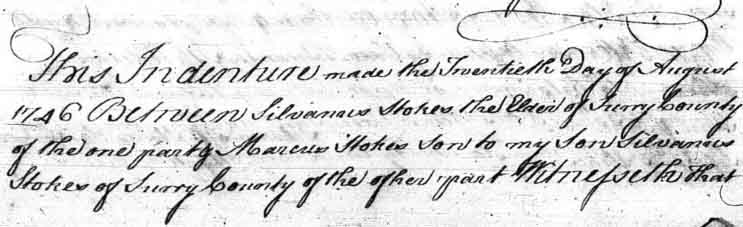 This Indenture made the Twentieth Day of August
1746 Between Silvanus Stokes the Elder of Surry County
of the one part & Marcus Stokes Son to my Son Silvanus
Stokes of Surry County of the other part Witnesseth that